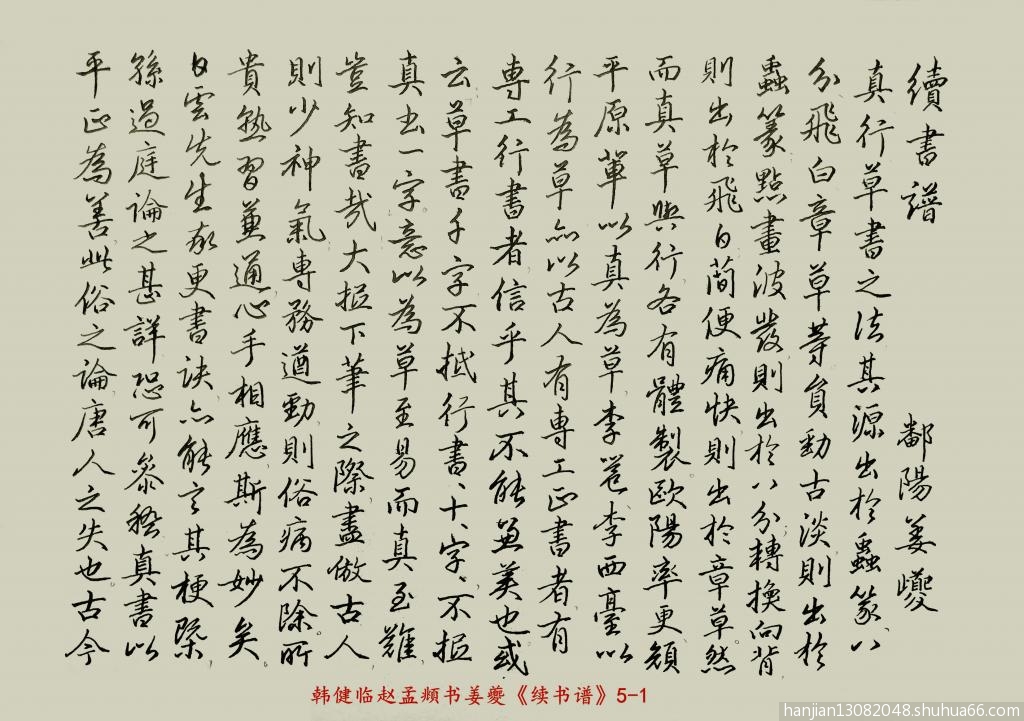 續書譜 鄱陽姜夔
真行草書之法其源出於蟲篆八
分飛白章草等員勁古淡則出於
蟲篆點畫波發則出於八分轉換向背
則出於飛白簡便痛快則出於章草然
而真草與行各有體製歐陽率更顏
平原軰以真為草李邕李西臺以
行為草亦以古人有専工正書者有
専工行書者信乎其不能兼美也或
云草書千字不抵行書、十、字、不抵
真书一字意以為草至易而真至難
豈知書哉大抵下筆之際盡倣古人
則少神氣専務遒勁則俗病不除所
貴熟習兼通心手相應斯為妙矣
白雲先生率更書訣亦能言其梗槩
孫過庭論之甚詳恐可參稽真書以
平正為善此俗之論唐人之失也古今
韩健临赵孟頫书姜夔《续书谱》5-1
hanjian13082048.shuhua66.com